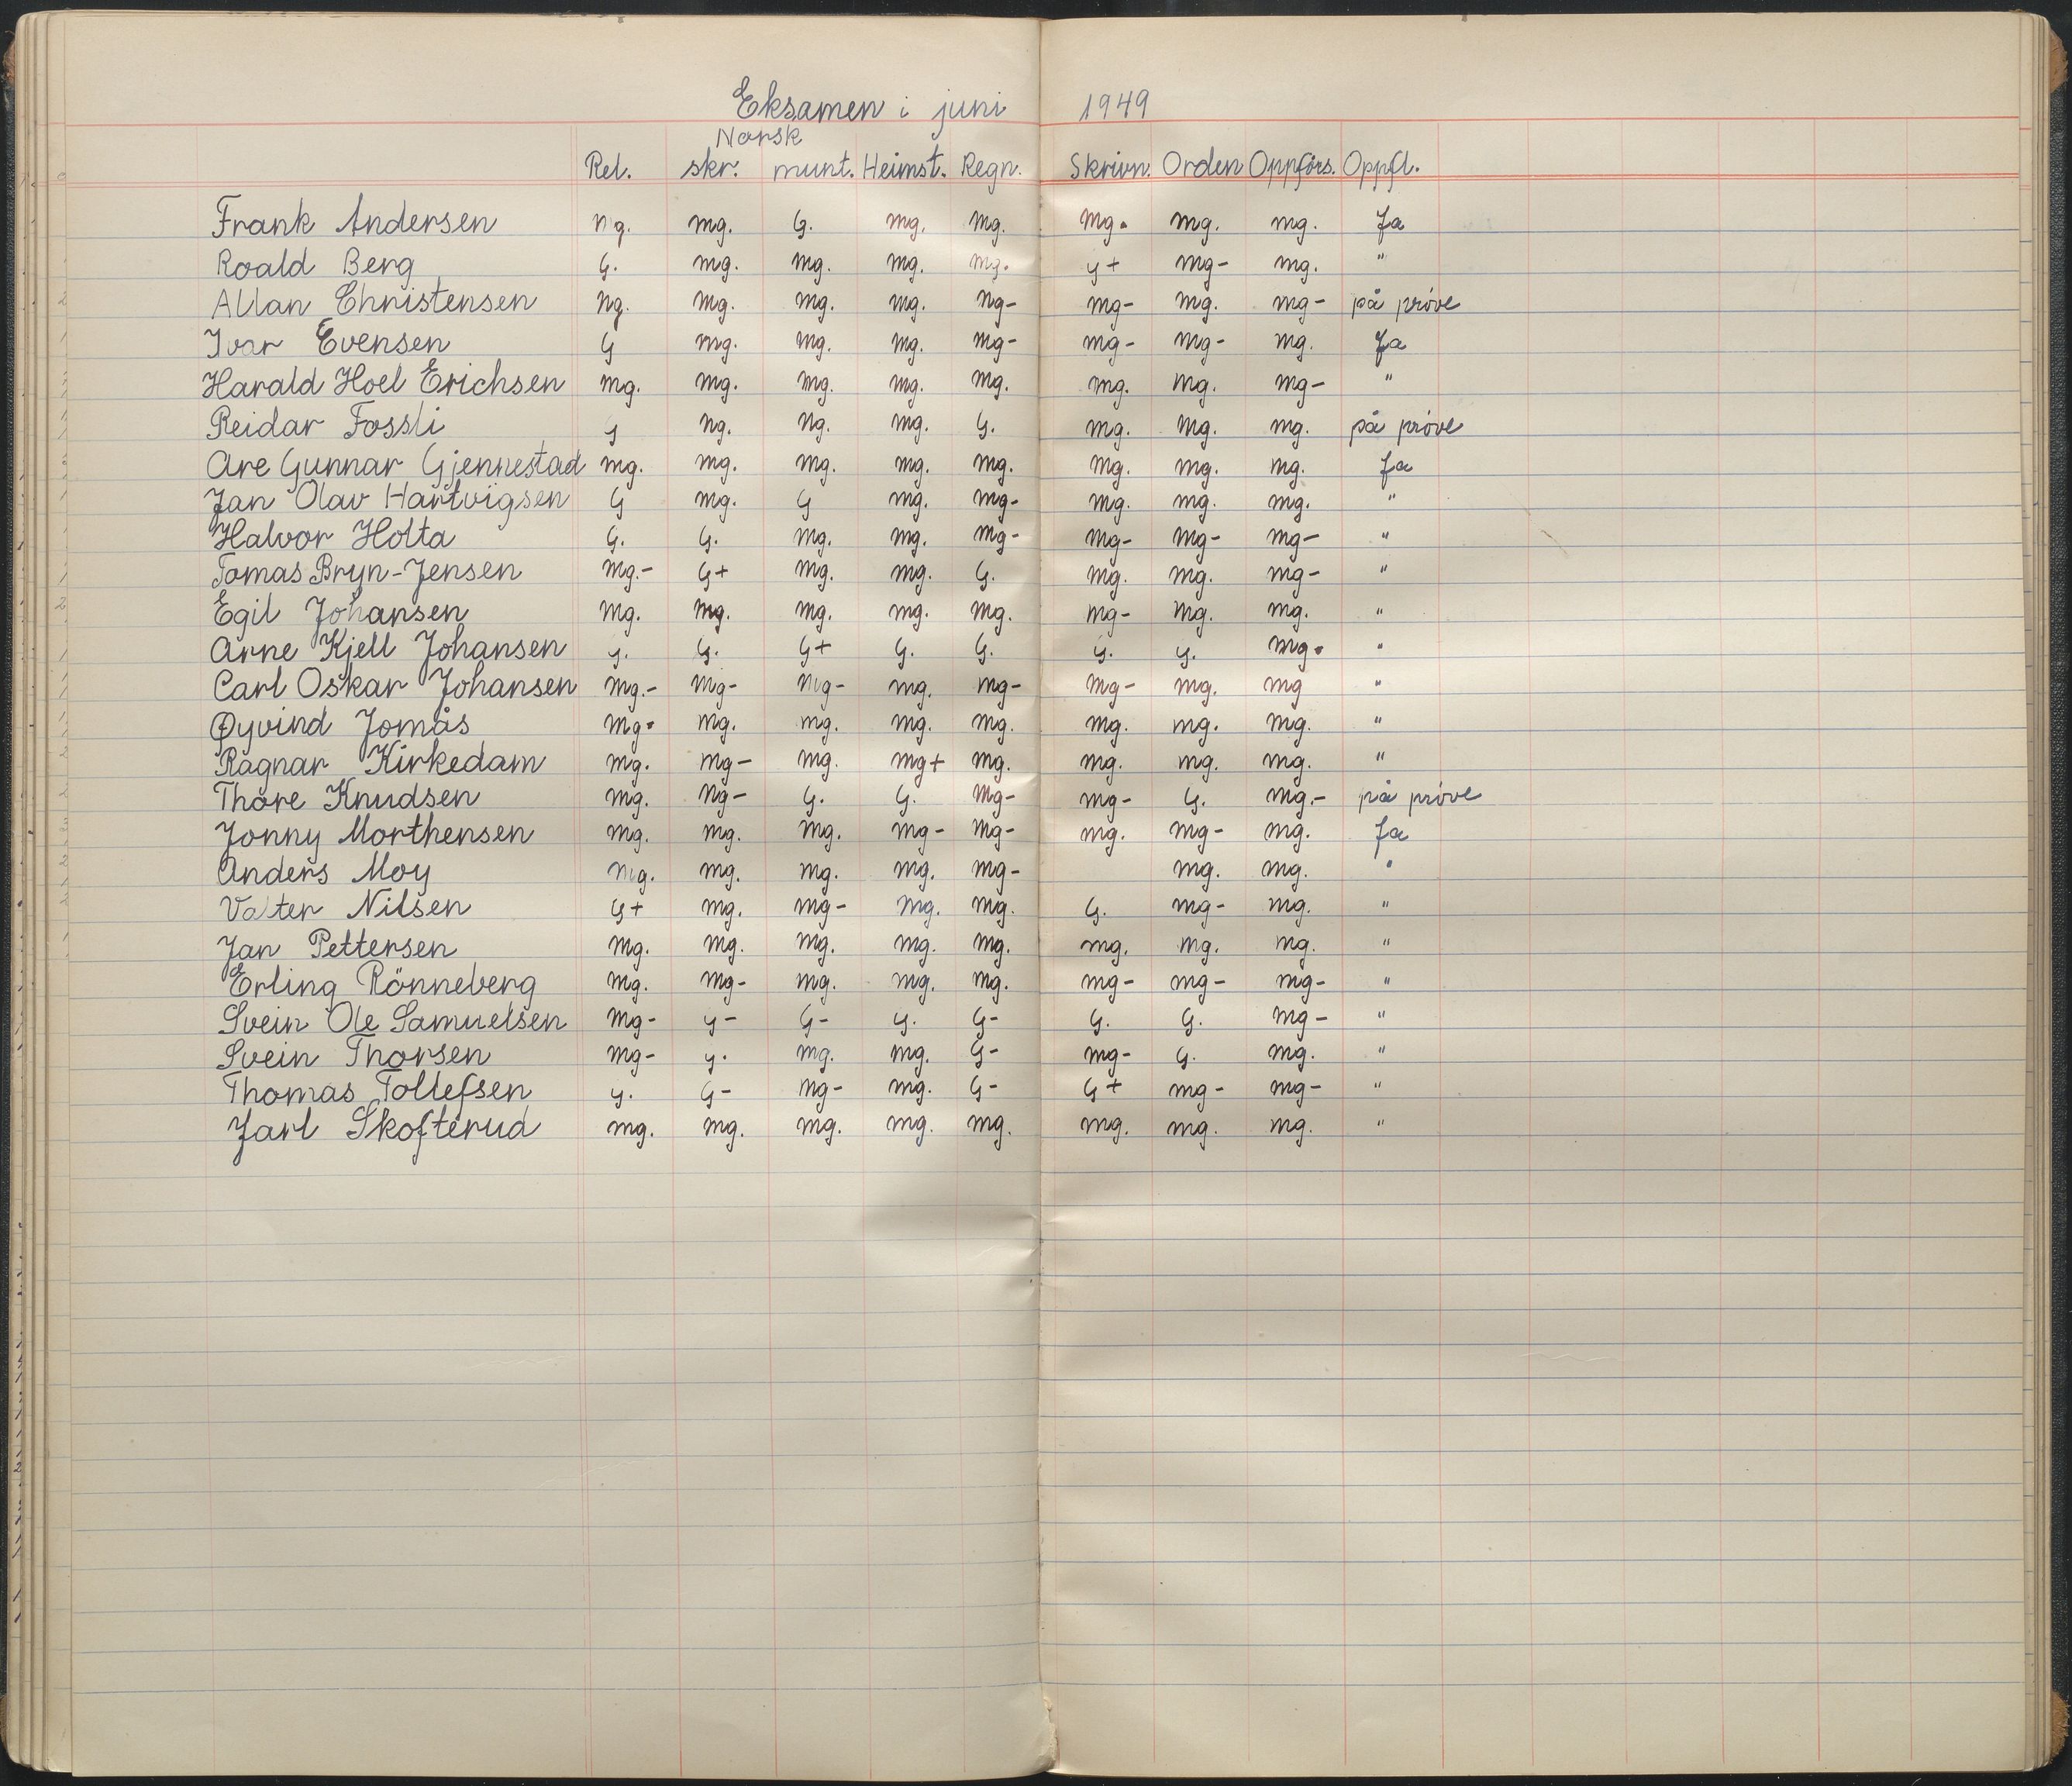 Eksamen i juni 1949
Norsk
Rel. skr. munt. Heimst. Regn. Skrivn. Orden Oppførs. Oppfl.
Frank Andersen Ng. mg. G. mg. mg. mg. mg. mg. Ja
Roald Berg G. mg. mg. mg. mg. G+ mg- mg. "
Allan Christensen Ng. mg. mg. mg. Ng- mg- mg. mg- på prøve
Ivar Evensen G mg. mg. mg. mg- mg- mg- mg. Ja
Harald Hoel Erichsen mg. mg. mg. mg. mg. mg. mg. mg- "
Reidar Fossli G Ng. Ng. mg. G. mg. mg. mg. på prøve
Are Gunnar Gjennestad mg. mg. mg. mg. mg. mg. mg. mg. Ja
Jan Olav Hartvigsen G mg. G mg. mg- mg. mg. mg. "
Halvor Holta G. G. mg. mg. mg- mg- mg- mg- "
Tomas Bryn-Jensen mg.- G+ mg. mg. G. mg. mg. mg- "
Egil Johansen mg. mg. mg. mg. mg. mg- mg. mg. "
Arne Kjell Johansen G. G. G+ G. G. G. G. mg. "
Carl Oskar Johansen mg.- mg- mg- mg. mg- mg- mg. mg "
Øyvind Jomås mg- mg. mg. mg. mg. mg. mg. mg. "
Ragnar Kirkedam mg. mg- mg. mg+ mg. mg. mg. mg. "
Thore Knudsen mg. Ng- G. G. mg- mg- G. mg.- på prøve
Jonny Morthensen mg. mg. mg. mg- mg- mg. mg- mg. Ja
Anders Moy mg. mg. mg. mg. mg- mg. mg. "
Valter Nilsen G+ mg. mg- mg. mg. G. mg- mg. "
Jan Pettersen mg. mg. mg. mg. mg. mg. mg. mg. "
Erling Rönneberg mg. mg- mg. mg. mg. mg- mg- mg- "
Svein Ole Samuelsen mg- G- G- G. G- G. G. mg- "
Svein Thorsen mg- G. mg. mg. G- mg- G. mg. "
Thomas Tollefsen G. G- Ng- mg. G- G+ mg- mg- "
Jarl Skofterud mg. mg. mg. mg. mg. mg. mg. mg. "